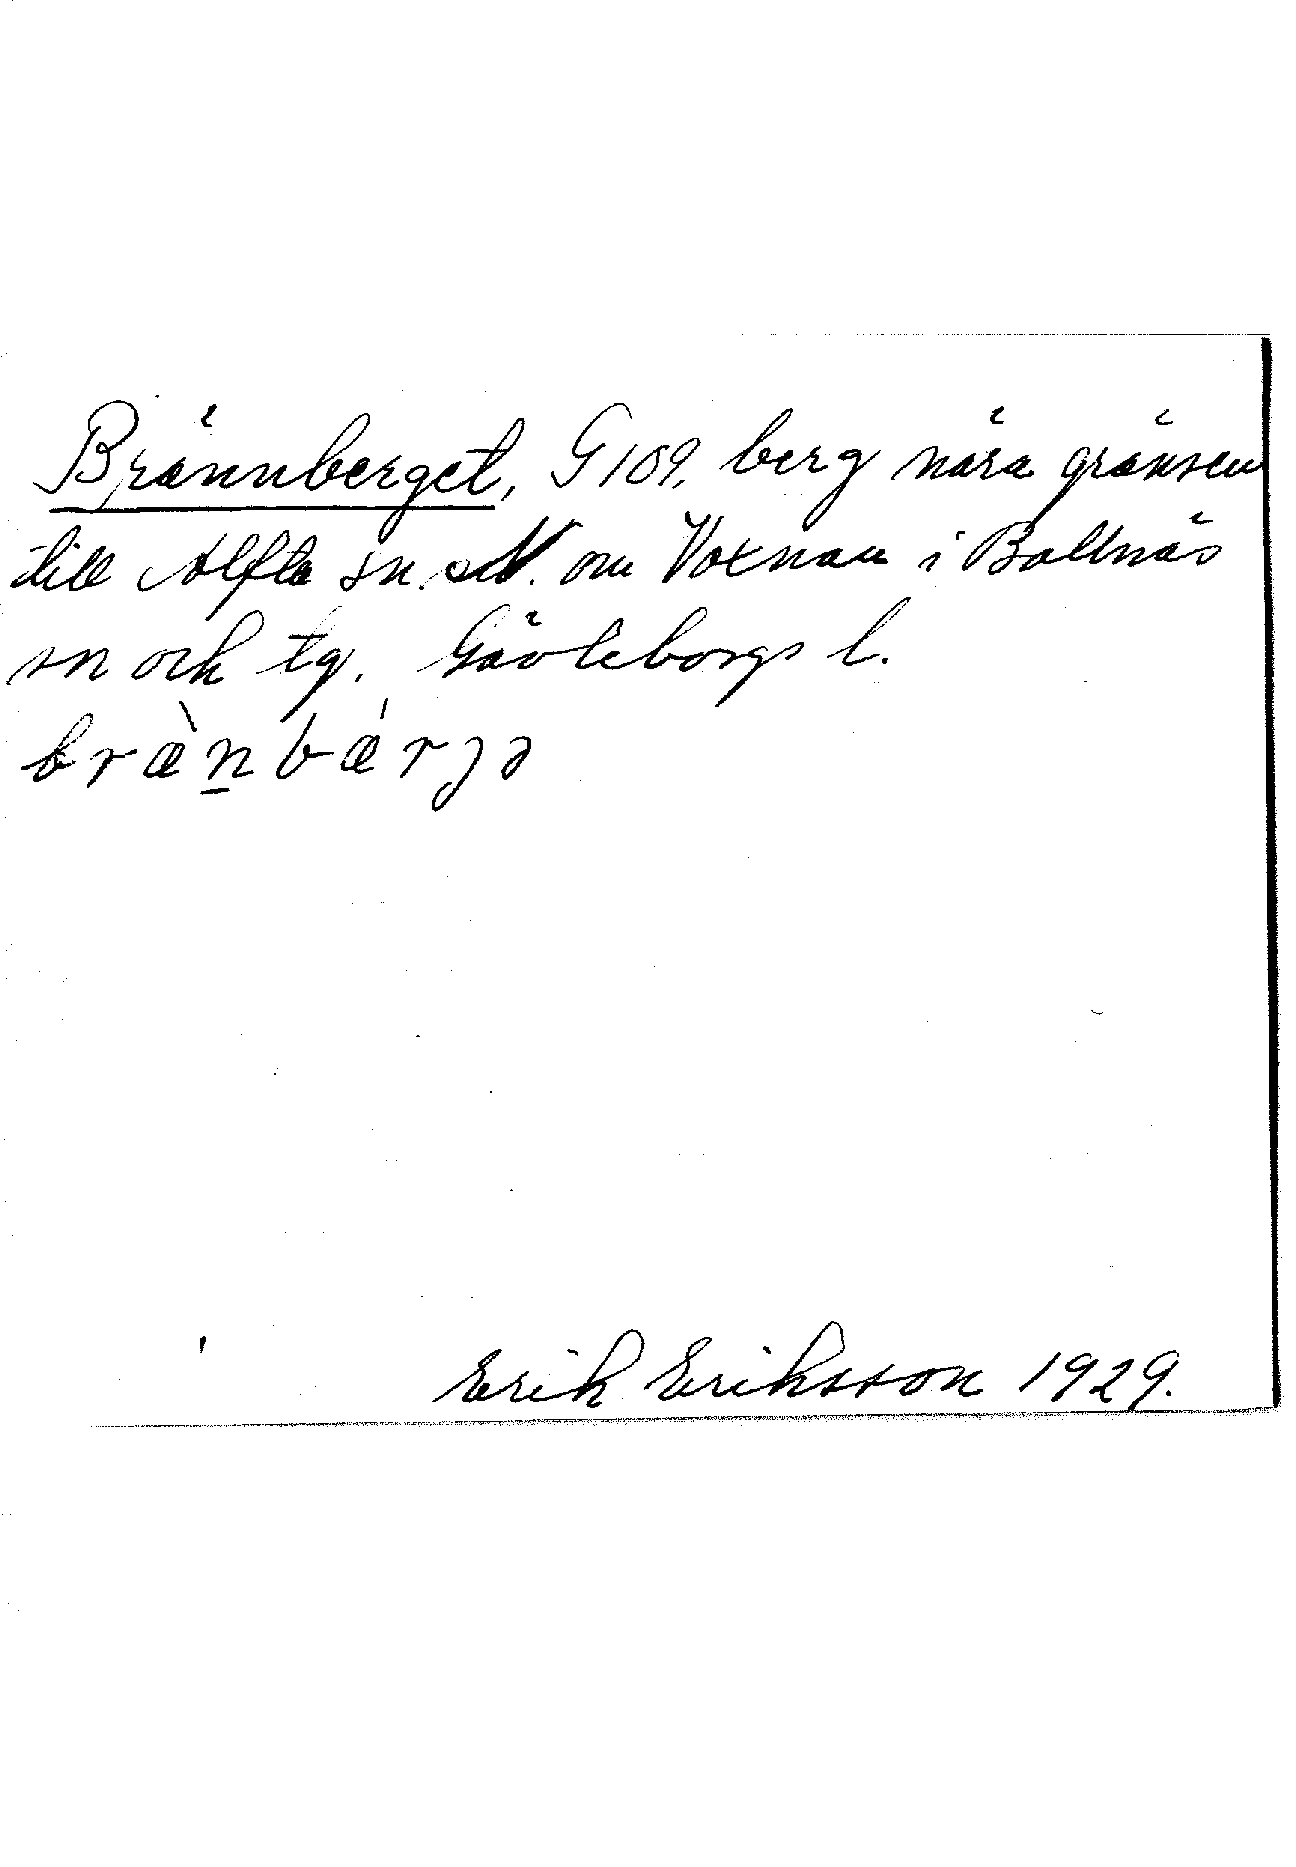 Brännberget, G 109, berg nära gränsen
till Alfta sn N. om Voxnan i Bollnäs
sn och tg. Gävleborgs l.
bræ̀n̲bǽrjə
Erik Eriksson 1929.